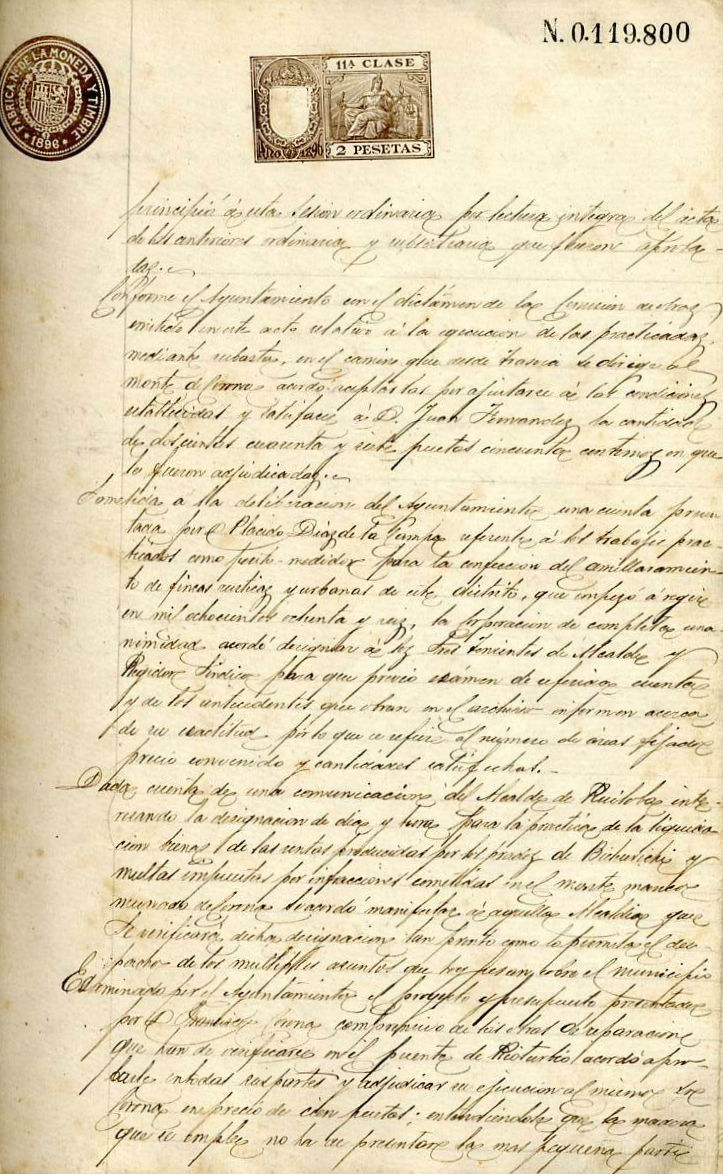 N. 0.119.800
FABRICA N. DE LA MONEDA Y TIMBRE
1896
11ª CLASE
Año 1896
2 PESETAS
principió á esta sesion ordinaria por lectura integra del acta
de las anteriores ordinaria y subsidiaria que fueron aproba-
das.
Conforme el Ayuntamiento en el dictámen de la Comision de obras
emitido en este acto relativo á la ejecucion de las practicadas,
mediante subasta, en el camino que desde Trasvia se dirige al
monte de Corona acordó aceptarlas por ajustarse á las condiciones
establecidas y satisfacer á D. Juan Fernandez la cantidad
de doscientas cuarenta y siete pesetas cincuenta centimos en que
le fueron adjudicadas.
Sometida á la deliberacion del Ayuntamiento una cuenta presen-
tada por D. Placido Diaz de la Campa referente á los trabajos prac-
ticados como perito-medidor para la confeccion del amillaramien-
to de fincas rusticas y urbanas de este distrito, que empezó a regir
en mil ochocientos ochenta y seis, la Corporacion de completa una-
nimidad acordó designar á los tres Tenientes de Alcalde y
Regidor Síndico para que previo exámen de referida cuenta
y de los antecedentes que obran en el archivo informen acerca
de su exactitud por lo que se refiere al número de áreas fijadas
precio convenido y cantidades satisfechas.-
Dada cuenta de una comunicacion del Alcalde de Ruiloba inte-
resando la designacion de dia y hora para la practica de la liquida-
cion de las rentas producidas por los prados de y
multas impuestas por infracciones cometidas en el monte manco-
munado de Corona se acordó manifestar á aquella Alcaldia que
se verificará dicha designacion tan pronto como lo permita el des-
pacho de los multiples asuntos que hoy pesan sobre el municipio
Examinado por el Ayuntamiento el proyecto y presupuesto presentado
por D. Francisco Corona comprensivo de las obras de reparacion
que han de verificarse en el puente de Rioturbio acordó apro-
barle en todas sus partes y adjudicar su ejecucion al mismo Sr.
Corona en precio de cien pesetas; entendiéndose que la madera
que se emplee no ha de presentar la mas pequeña parte